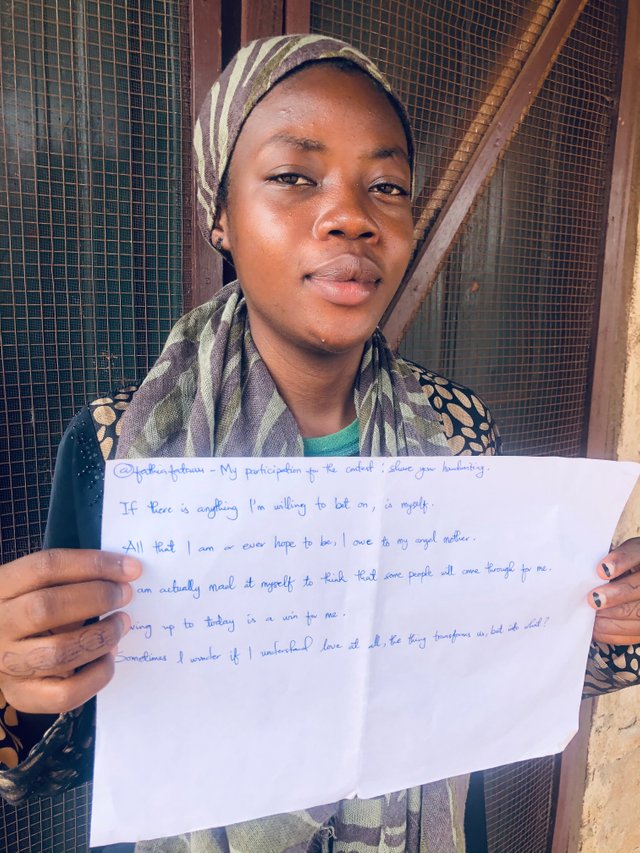 - My participation for the contest : share your handwriting.
If there is anything I'm willing to bet on, is myself.
All that I am or ever hope to be, I owe to my angel mother.
am actually mad at myself to think that some people will come through for me.
up to today is a win for me.
Sometimes I wonder if I understand love at all, the thing transforms us, but into what?